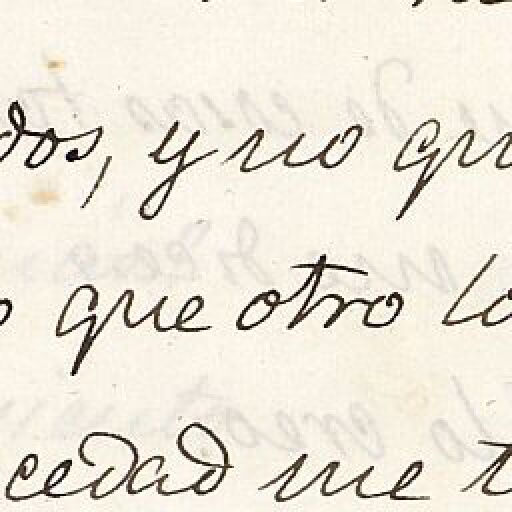 dos, y no qu
o que otro lo
cedad me t